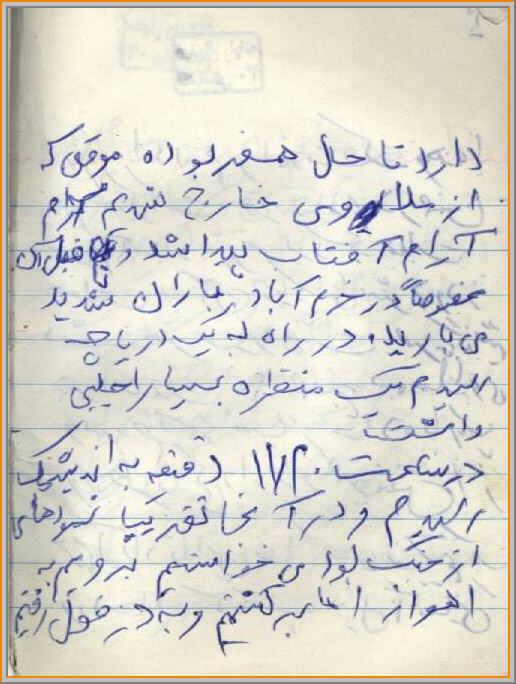 دارد تا حال همسفر بوده موقعی که
از ملاوی خارج شدیم آرام
آرام آفتاب پیدا شد و تا قبل از آن
مخصوصاً در خرم آباد باران شدید
می بارید. در راه به یک دریاچه
رسیدیم یک منظره بسیار جالبی
داشت.
در ساعت ۱۷۲۰ دقیقه به اندیشمک
رسیدیم و در آنجا تقریبا نمودهای
از جنگ بود می خواستیم برویم به
اهواز اما برگشتیم و به دزفول رفتیم